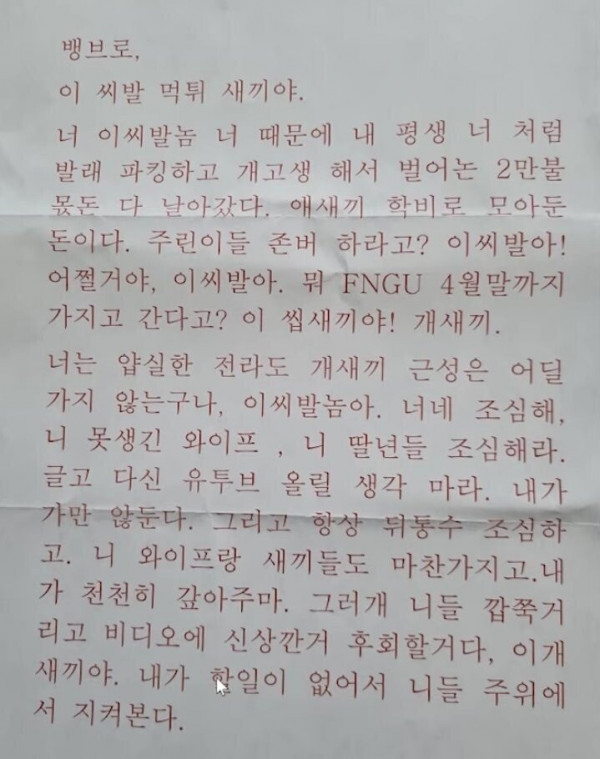 뱅브로,
이 씨발 먹튀 새끼야.
너 이씨발놈 너 때문에 내 평생 너 처럼
발래 파킹하고 개고생 해서 벌어논 2만불
몫돈 다 날아갔다. 애새끼 학비로 모아둔
돈이다. 주린이들 존버 하라고? 이씨발아!
어쩔거야, 이씨발아. 뭐 FNGU 4월말까지
가지고 간다고? 이 씹새끼야! 개새끼.
너는 얍실한 전라도 개새끼 근성은 어딜
가지 않는구나, 이씨발놈아. 너네 조심해,
니 못생긴 와이프 , 니 딸년들 조심해라.
글고 다신 유투브 올릴 생각 마라. 내가
가만 않둔다. 그리고 항상 뒤통수 조심하
고. 니 와이프랑 새끼들도 마찬가지고.내
가 천천히 갚아주마. 그러개 니들 깝쭉거
리고 비디오에 신상깐거 후회할거다, 이개
새끼야. 내가 할일이 없어서 니들 주위에
서 지켜본다.